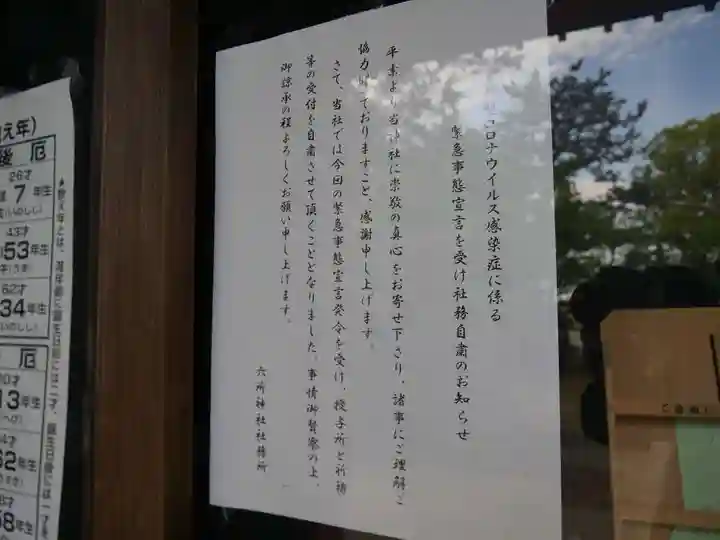 コロナウイルス感染症に係る
緊急事態宣言を受け社務自粛のお知らせ
平素より当神社に崇敬の真心をお寄せ下さり、諸事にご理解ご
協力頂いておりますこと、感謝申し上げます。
さて、当社では今回の緊急事態宣言発令を受け、授与所と祈祷
等の受付を自粛させて頂くこととなりました。事情御賢察の上、
御諒承の程よろしくお願い申し上げます。
六所神社社務所
元年)
後厄
26才
7年生
(いのしし)
43才
53年生
(うま)
62才
34年生
(いのしし)
厄
13年生
(へび)
62年生
58年生
▲数え年とは、満年齢に誕生日前には二才、誕生日後には一才を